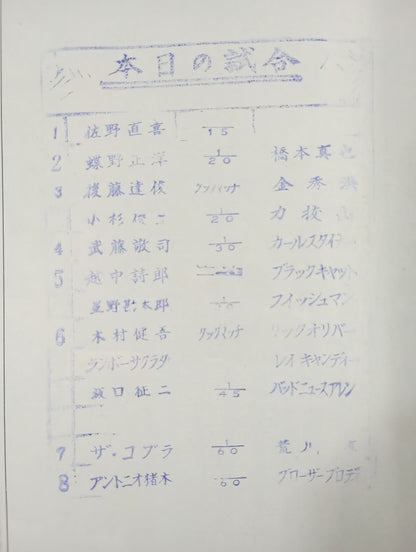 本日の試合
1 佐野直喜 15
2 蝶野正洋 1/20 橋本真也
3 後藤達俊 タッグマッチ 金秀洪
小杉俊二 1/20 力抜山
4 武藤敬司 1/30 カールスタイナー
5 越中詩郎 ブラックキャット
星野勘太郎 フィッシュマン
6 木村健吾 タッグマッチ リックオリバー
ランボーサクラダ レイキャンディー
坂口征二 1/45 バッドニュースアレン
7 ザ・コブラ 1/60 荒川
8 アントニオ猪木 60 ブローザーブロディ